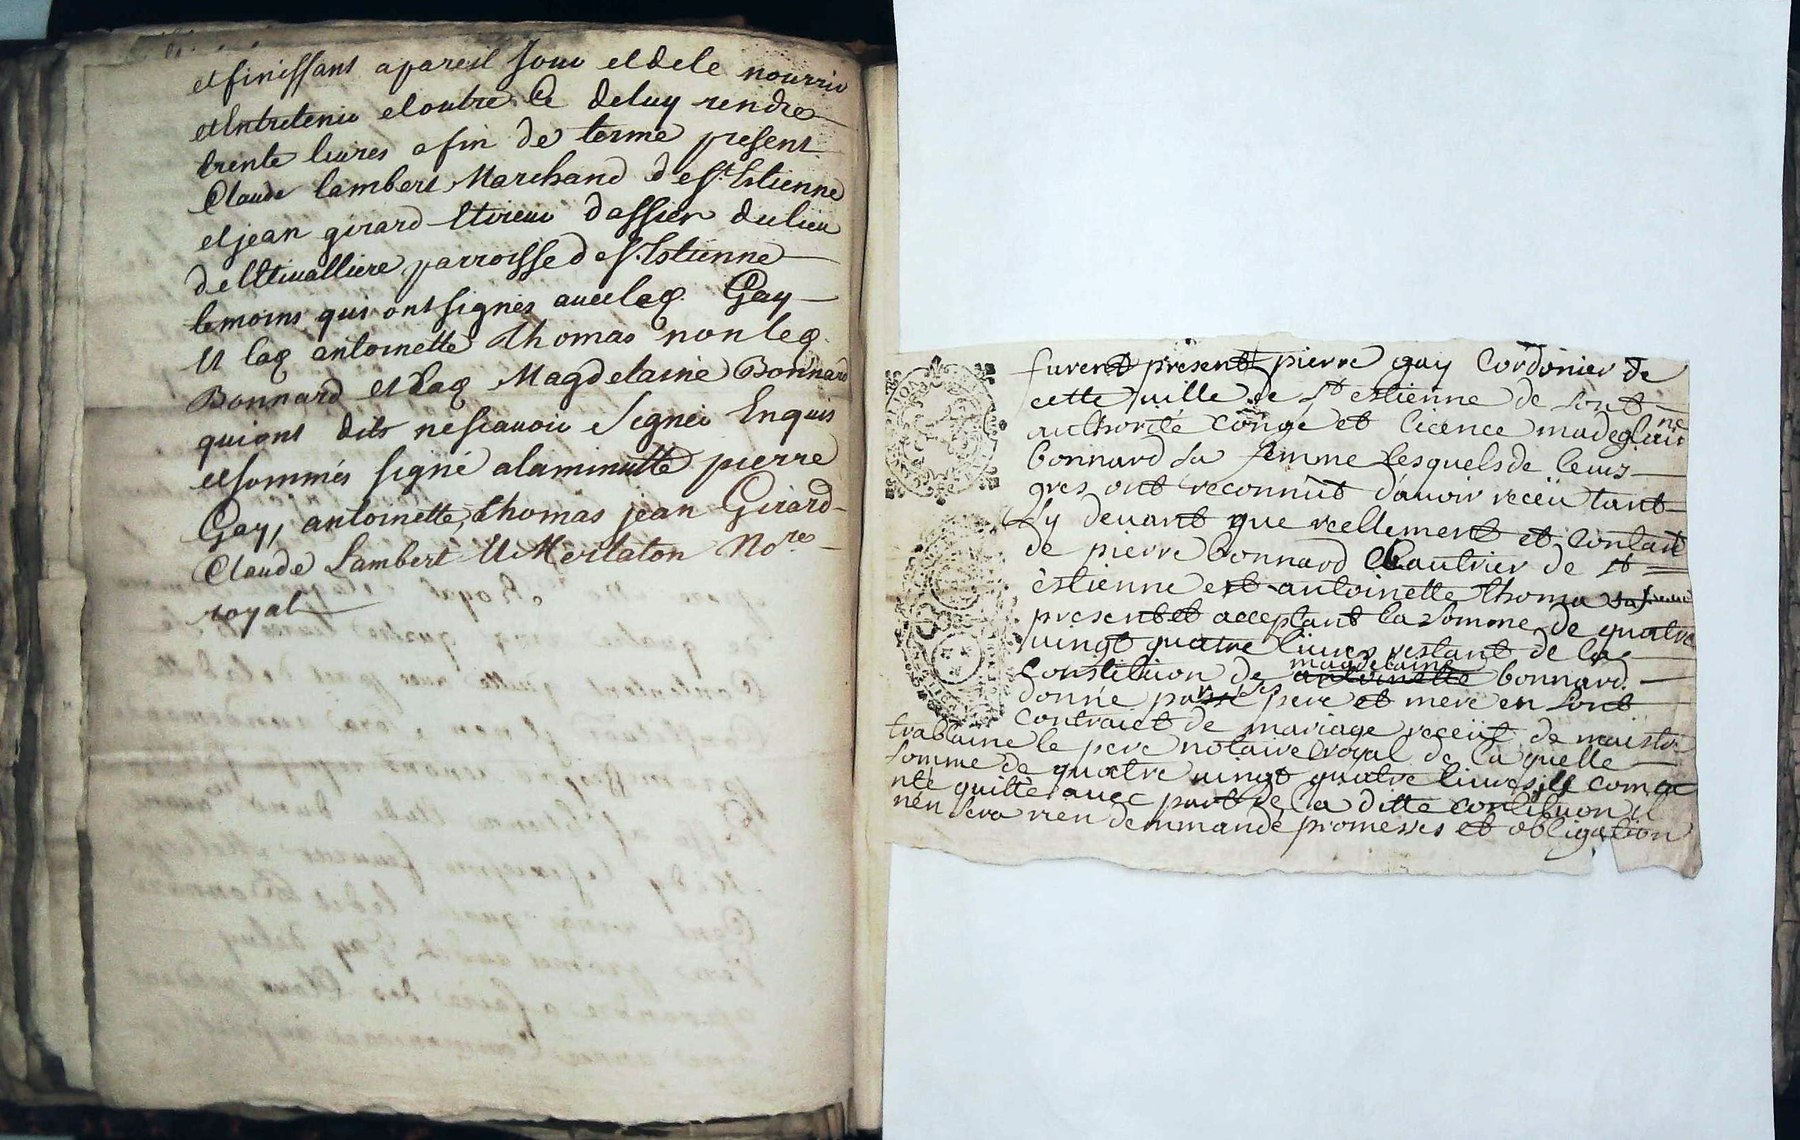 et finissant a pareil Jour et dele nourrir
et Entretenir et outre Ce deluy rendre
trente liures a fin de terme present
Claude lambert Marchand de St. Estienne
et jean girard tireur d'assier du lieu
de lEtiualliere parroisse de St. Estienne
temoins qui ont signés auec led. Gay
Et lad antoinette thomas non led.
Bonnard et Lad Magdelaine Bonnard
qui ont dits ne scauoir signer Enquis
et sommés signé a la minutte pierre
Gay, antoinette thomas jean Girard
Claude Lambert Et Merlaton No.re
royal
furent present pierre gay Cordonier de
cette uille de St estienne de sont
authorité conge et licence madeglaine
bonnard sa femme lesquels de leurs
gres ont reconnut d'auoir receü tant
sy deuant que reellement et contant
de pierre bonnard Chautrier de St
estienne et antoinette thoma sa feme
present et acceptant la somme de quatre
uingt quatre liures restant de la
Constitution de magdelaine antoinette bonnard
donne par ses pere et mere en sont
contract de mariage receüt de maistre
trablaine le pere notaire royal de laquelle
somme de quatre uingt quatre liures ill contante
nte quitte auec part de la ditte contitution il
nen sera rien demmandé promesses et obligation